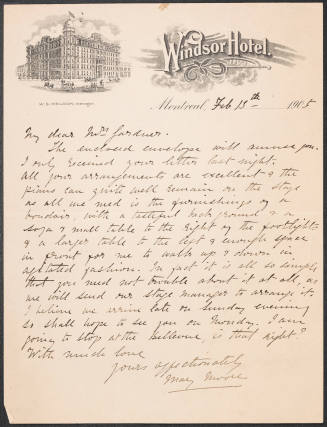 Windsor Hotel.
W. S. WELDON, Manager.
Montreal, Feb 13th 1905
My dear Mrs Gardner.
The enclosed envelope will amuse you.
I only received your letter last night.
All your arrangements are excellent & the
piano can quite well remain on the stage
as all we need is the furnishings of a
boudoir, with a tasteful back ground & a
sofa & small table to the right of the footlights
& a larger table to the left & enough space
in front for me to walk up & down in
agitated fashion. In fact it is all so simple
that you need not trouble about it at all, as
we will send our stage manager to arrange it.
I believe we arrive late on Sunday evening
so shall hope to see you on Monday. I am
going to stop at the Bellevue, is that right?
With much love
yours affectionately
Mary Moore